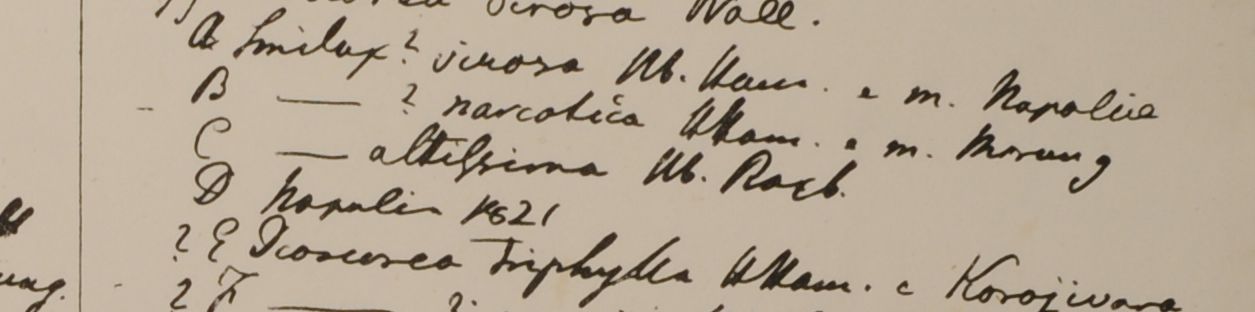 virosa Wall.
A Smilax? virosa Hb. Ham. e m. Napaliae
B —— ? narcotica HHam. e m. Morung
C —— altissima Hb. Roxb.
D Napalia 1821
? E Dioscurea Triphylla HHam. e Korojwara
? F —— ?
ung.